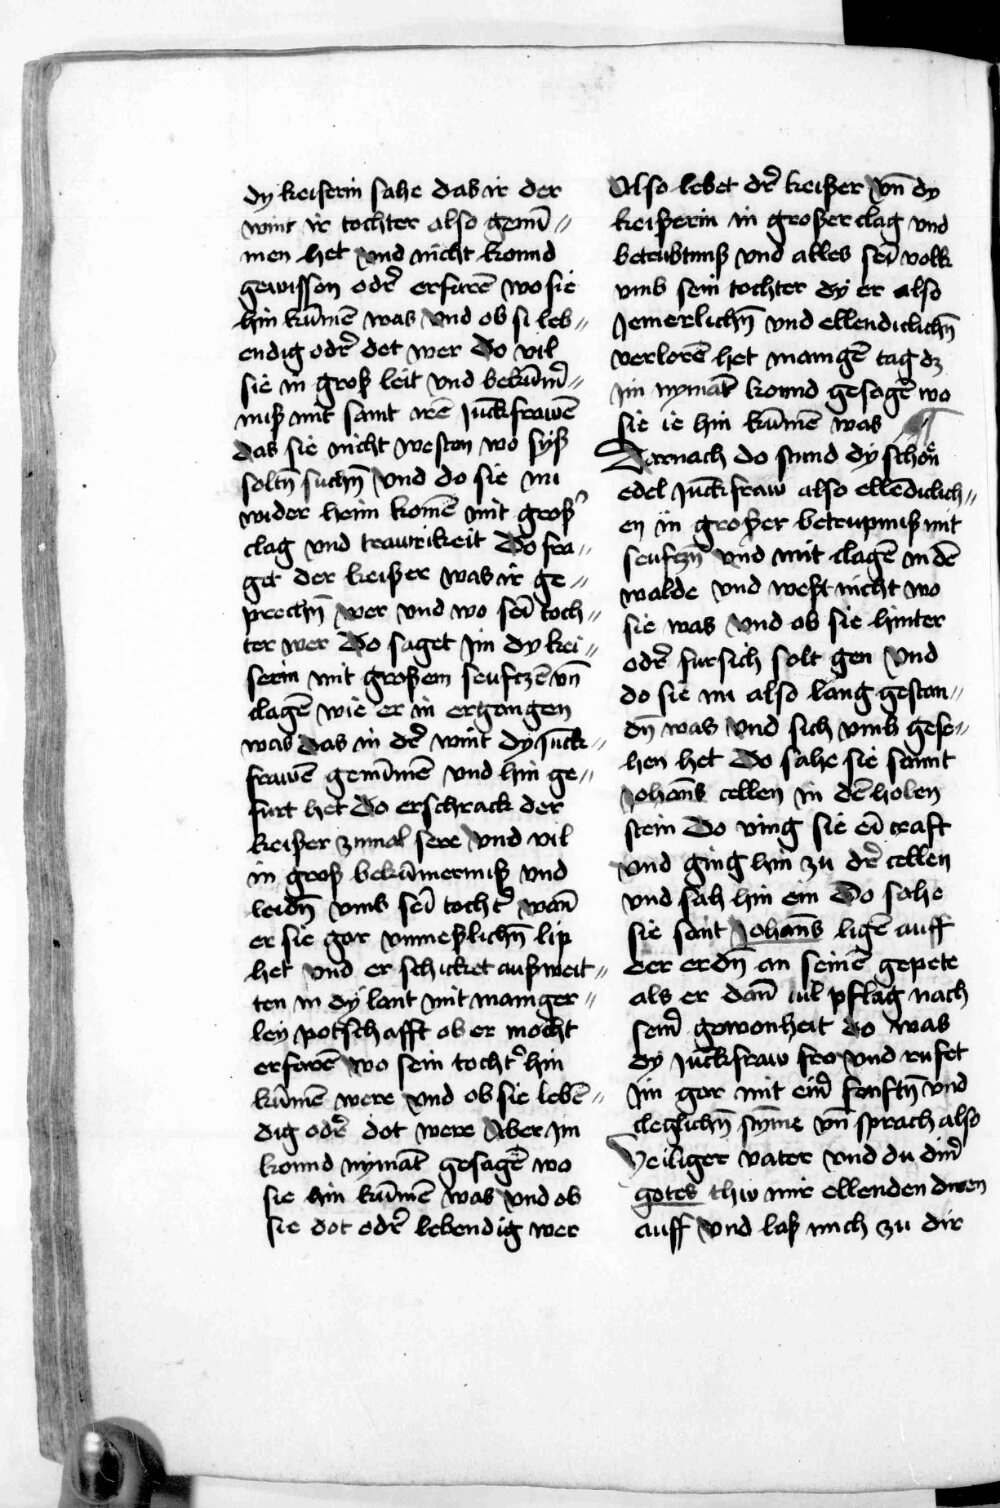 dy keiserin sahe das ir der
wint ir tochter also genū//
men het Vnd nicht konnd
gewissen odr̄ erfarē wo sie
hin kūmē was Vnd ob si leb//
endig odr̄ det wer Do vil
sie in groß leit Vnd bekūm̄//
niß mit samt irē Juckfrawē
das sie nicht westen wo syß
soltn̄ suchn̄ Vnd do sie nu
wider heim komē mit groß'
clag vnd traurikeit Do fra//
get der keißer was ir ge//
prechn̄ wer vnd wo sei toch//
ter wer Do saget im dy kei//
serin mit großem seuftzē vn̄
clagē wie er in ergangen
was das in dr̄ wint dy Juck//
frawē genūmmē vnd hin ge//
furt het Do erschrack der
keißer zumal sere Vnd vil
in groß bekūmerniß vnd
leidn̄ vmb sei tocht' wan̄
er sie gar vnmeßlichn̄ lip
het Vnd er schicket auß weit//
ten in dy lant mit manger//
ley potschafft ob er mocht
erfarē wo sein tocht' hin
kūmē were Vnd ob sie lebē//
dig odr̄ dot were Aber im
konnd nymāt gesagē wo
sie hin kūmē was Vnd ob
sie dot odr̄ lebendig wer
Also lebet dr̄ keißer vn̄ dy
keißerin in großer clag vnd
betrubtniß vnd alles sei volk
vmb sein tochter dy er also
Jemerlichn̄ vnd ellendiclichn̄
verlorē het mangē tag dz
im nymāt konnd gesagē wo
sie ie hin kūmē was
Darnach do stund dy schon̄
edel Juckfraw also ellēdiclich//
en in großer betrupniß mit
seuftzn̄ Vnd mit clagē in dē
walde vnd west nicht wo
sie was Vnd ob sie hinter
odr̄ fursich solt gen Vnd
do sie nu also lang gestan//
dn̄ was Vnd sich vmb gese//
hen het Do sahe sie sannt
Johan̄s cellen in dē holen
stein Do ving sie ei craft
Vnd ging hin zu dr̄ cellen
vnd sah hin ein Do sahe
sie sant Johan̄s ligē auff
der erdn̄ an seinē gepete
als er dan̄ vil pflag nach
seinr̄ gewonheit do was
dy Juckfraw fro Vnd rufet
Im gar mit einr̄ senftn̄ vnd
cleglichn̄ stȳme vn̄ sprach also
Heiliger vater vnd du dinr̄
gotes thu mir ellenden
auff Vnd laß mich zu dir